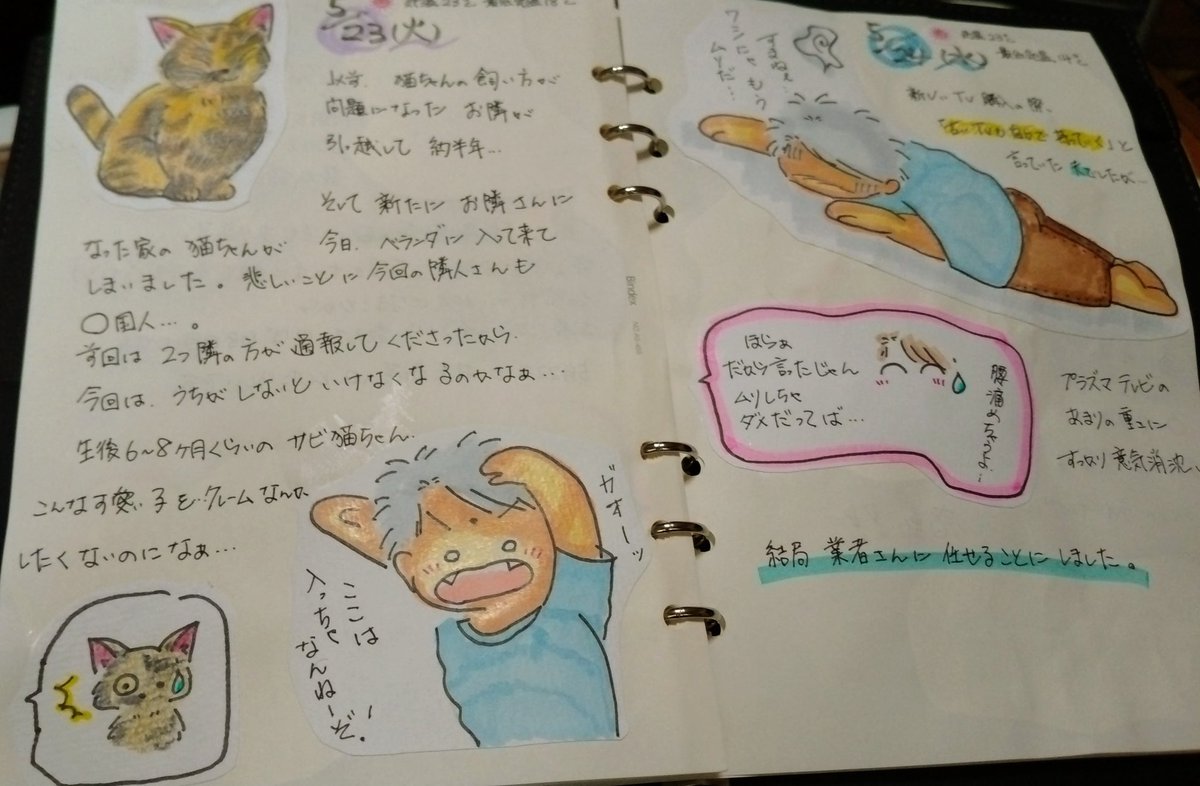 5/23(火)
以前、猫ちゃんの飼い方が
問題になった お隣が
引っ越して 約半年…
そして 新たに お隣さんに
なった家の 猫ちゃんが 今日、ベランダに 入って来て
しまいました。悲しいことに 今回の隣人さんも
〇国人…。
前回は 2つ隣の方が 通報して くださったから、
今回は、うちが しないと いけなくなるのかなぁ…
生後6〜8ヶ月くらいの サビ猫ちゃん、
こんな可愛い子を…クレームなんか
したくないのになぁ…
ガオーッ
ここは
入っちゃ
なんねーぞ!
5/24(水)
最低気温 14℃
新しい TV 購入の際、
と
言っていた
ワシにゃ もう
ムリだ…
ほらぁ
だから言ったじゃん
ムリしちゃ
ダメだってば…
腰痛めちゃうよ!
プラズマテレビの
あまりの重さに
すっかり 意気消沈、
結局 業者さんに 任せることにしました。
Bindex